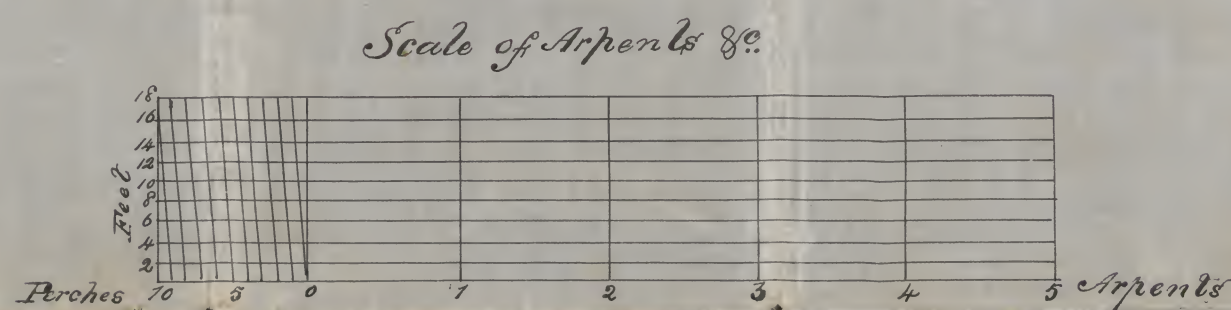 Scale of Arpents &c.
18
16
14
12
10
8
6
4
2
Feet
Perches 10 5 0 1 2 3 4 5 Arpents